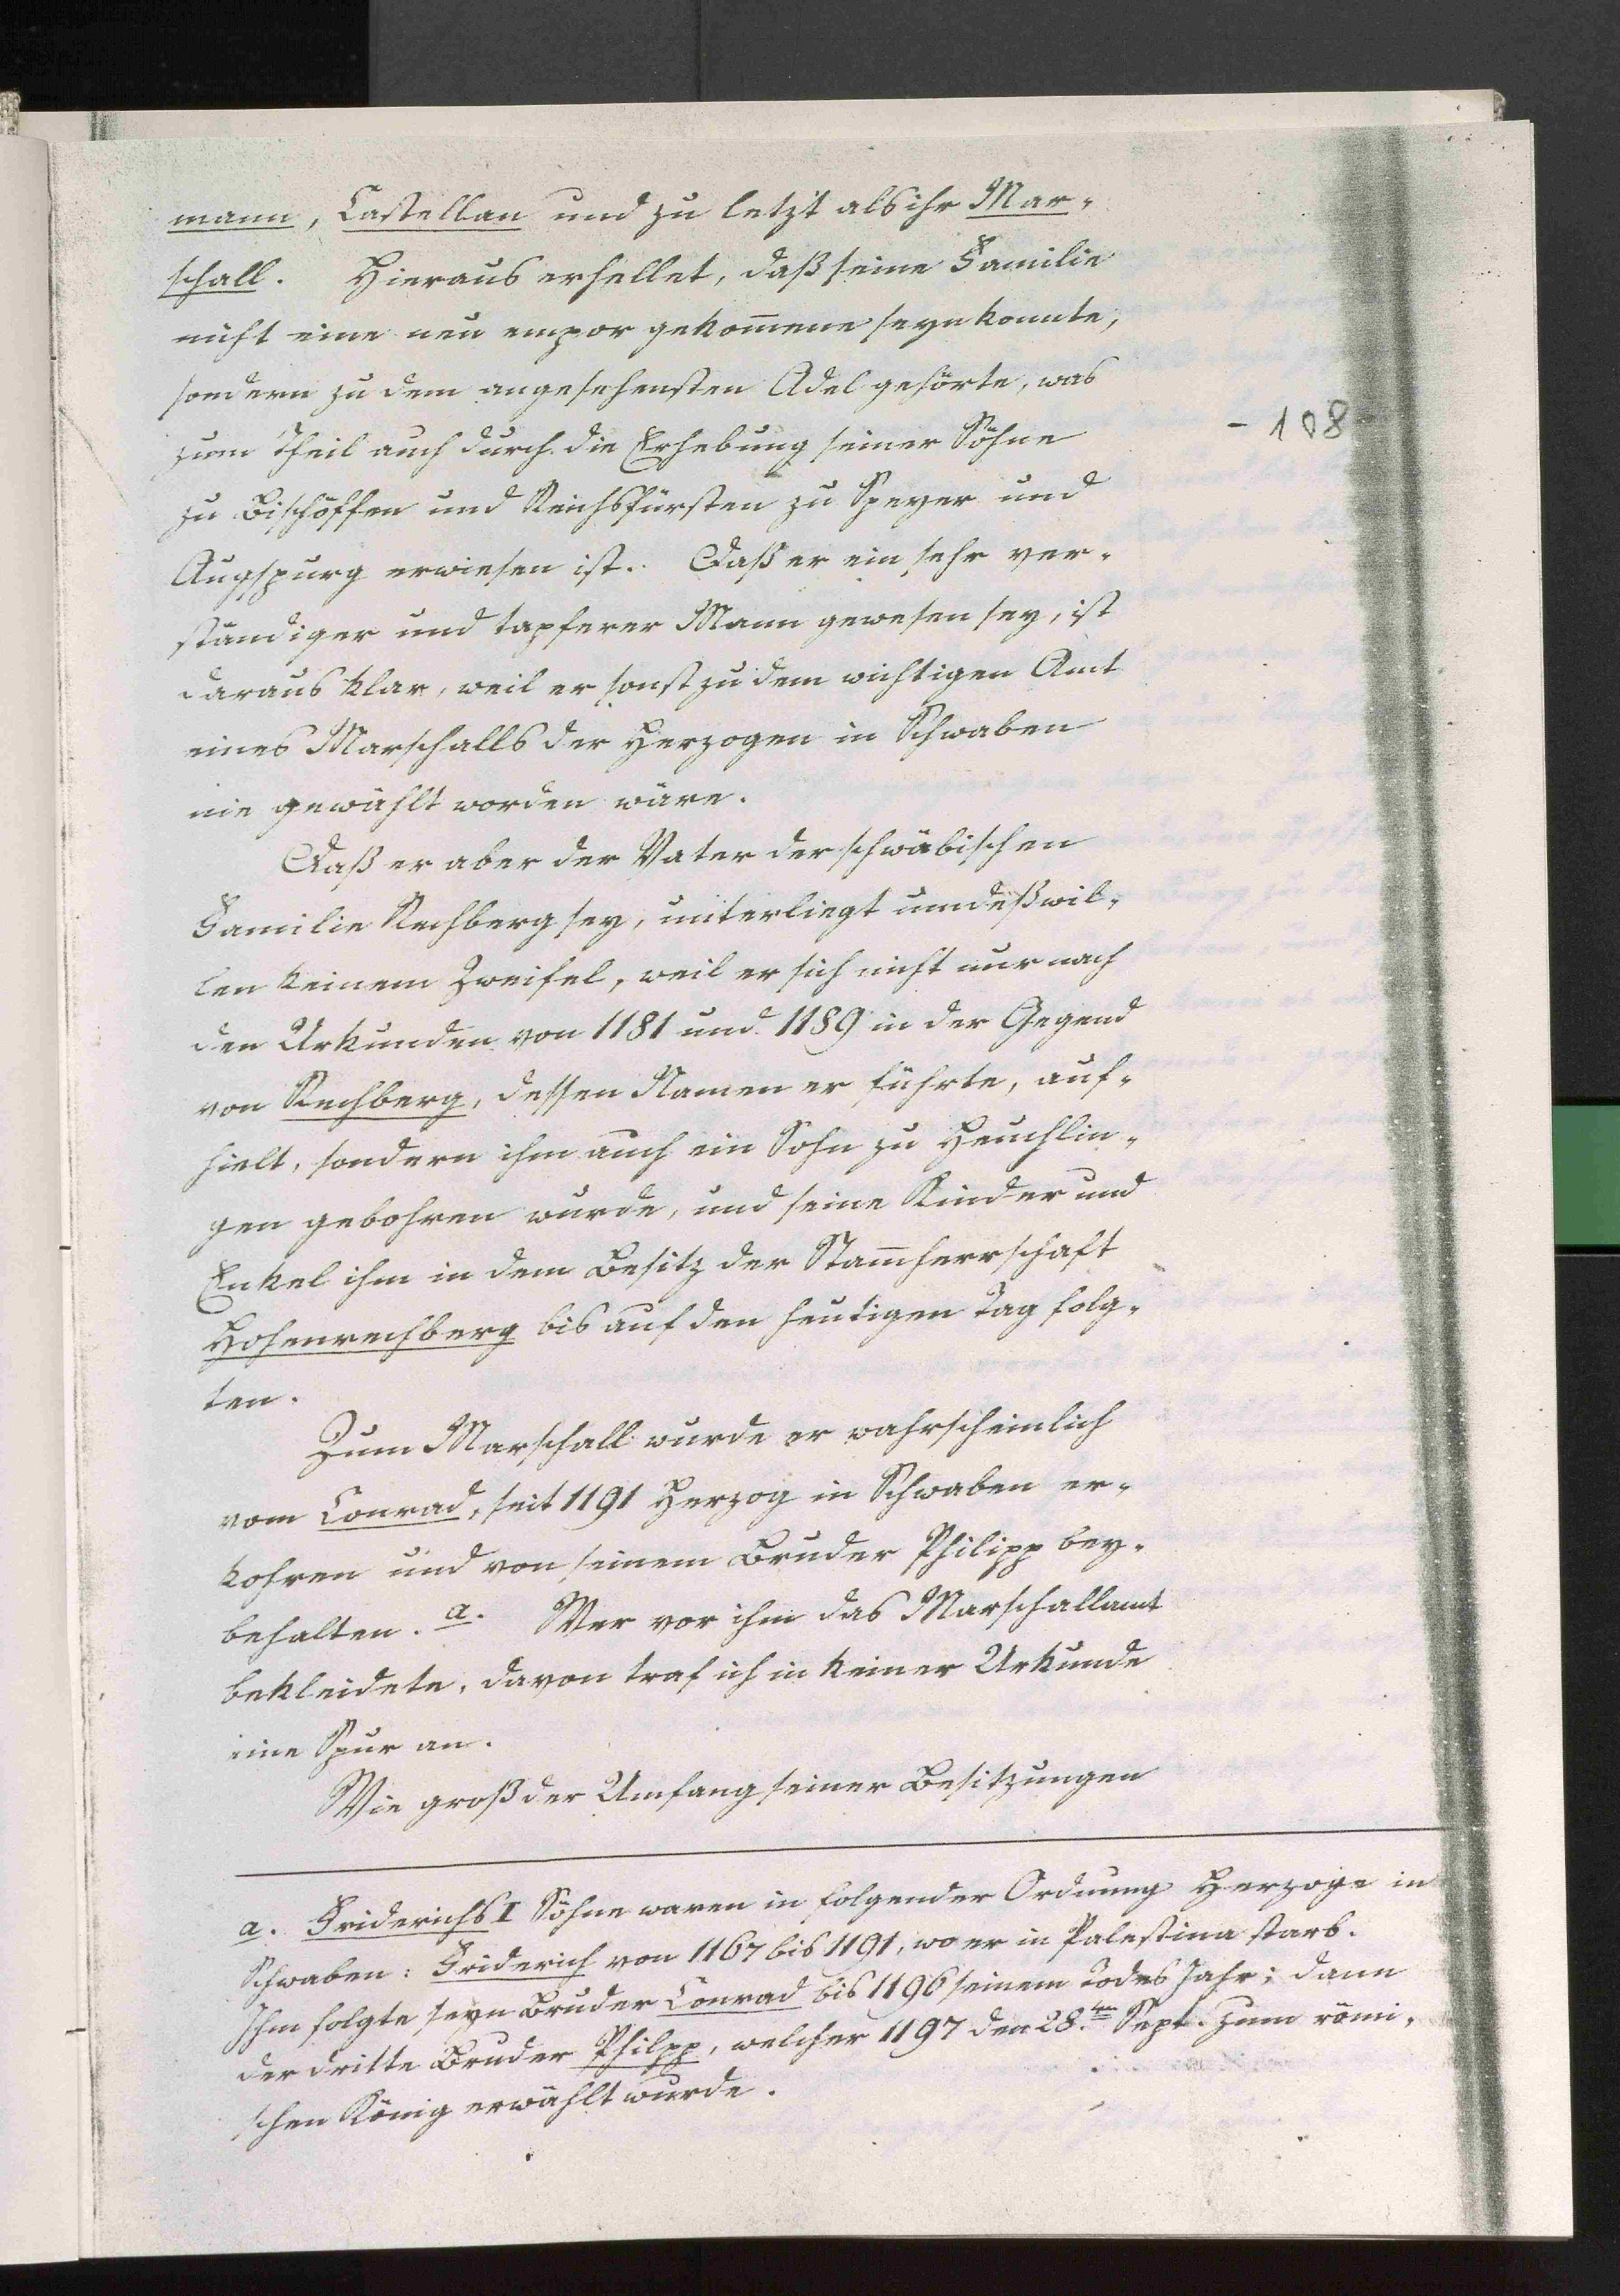 mann, Castellan und zu letzt als ihr Mar-
schall. Hieraus erhellet, daß seine Familie
nicht eine neu empor gekom̅ene seyn konnte,
sondern zu dem angesehensten Adel gehörte, was
zum Theil auch durch die Erhebung seiner Söhne
- 108 -
zu Bischöffen und Reichsfürsten zu Speyer und
Augspurg erwiesen ist. Daß er ein sehr ver-
ständiger und tapferer Mann gewesen sey, ist
daraus klar, weil er sonst zu dem wichtigen Amt
eines Marschalls der Herzogen in Schwaben
nie gewählt worden wäre.
Daß er aber der Vater der schwäbischen
Familie Rechberg sey, unterliegt umdeßwil-
len keinem Zweifel, weil er sich nicht nur nach
den Urkunden von 1181 und 1189 in der Gegend
von Rechberg, dessen Namen er führte, auf-
hielt, sondern ihm auch ein Sohn zu Heuchlin-
gen gebohren wurde, und seine Kinder und
Enkel ihm in dem Besitz der Stam̅herrschaft
Hohenrechberg bis auf den heutigen Tag folg-
ten.
Zum Marschall wurde er wahrscheinlich
vom Conrad, seit 1191 Herzog in Schwaben er-
kohren und von seinem Bruder Philipp bey-
behalten. a. Wer vor ihm das Marschallamt
bekleidete, davon traf ich in keiner Urkunde
eine Spur an.
Wie groß der Umfang seiner Besitzungen
a. Friderichs I Söhne waren in folgender Ordnung Herzoge in
Schwaben: Friderich von 1167 bis 1191, wo er in Palestina starb.
Ihm folgte seyn Bruder Conrad bis 1196 seinem Todes Jahr; dann
der dritte Bruder Philpp, welcher 1197 den 28.ten Sept. zum römi-
schen König erwählt wurde.